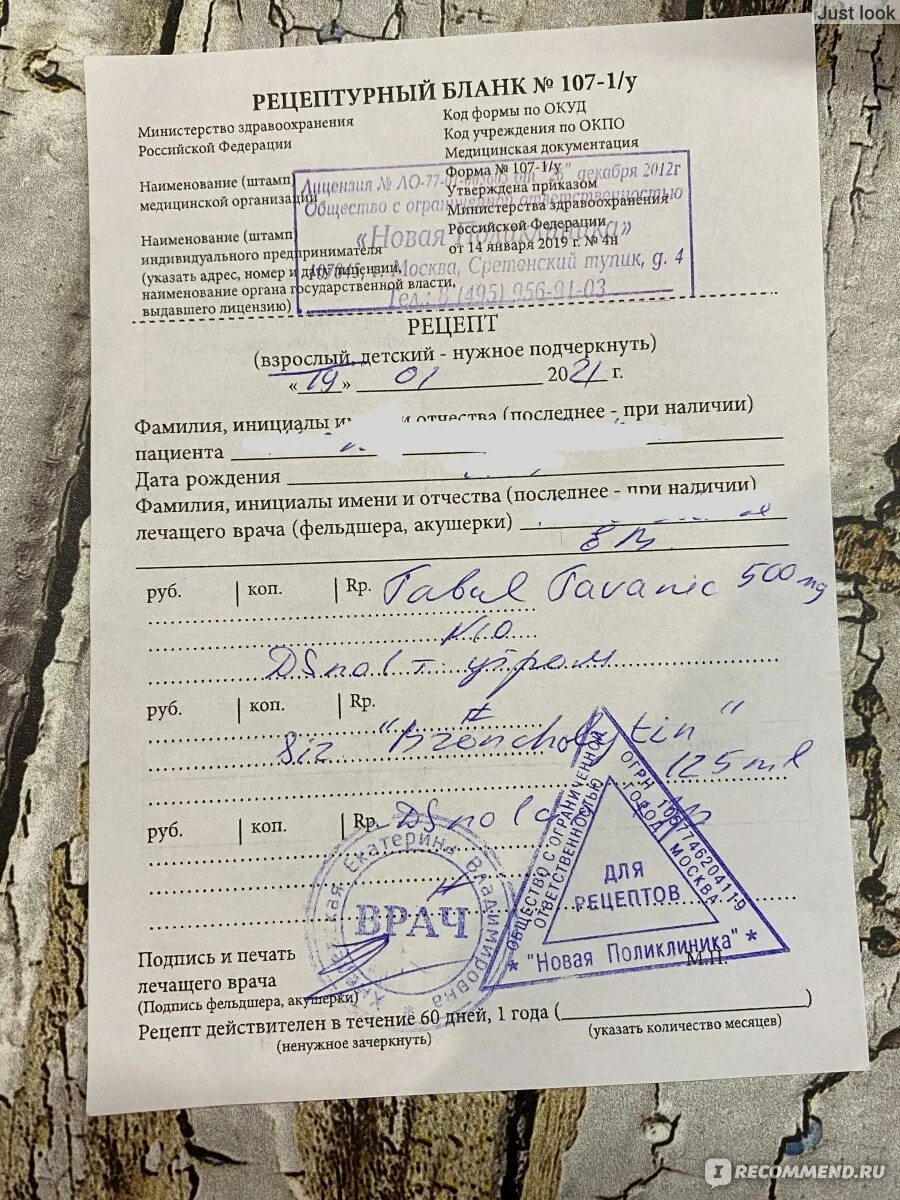 Just look
РЕЦЕПТУРНЫЙ БЛАНК № 107-1/у
Министерство здравоохранения
Российской Федерации
Код формы по ОКУД
Код учреждения по ОКПО
Медицинская документация
Форма № 107-1/у
Утверждена приказом
Министерства здравоохранения
Российской Федерации
от 14 января 2019 г. № 4н
Наименование (штамп)
медицинской организации
Наименование (штамп)
индивидуального предпринимателя
(указать адрес, номер и дату лицензии,
наименование органа государственной власти,
выдавшего лицензию)
Лицензия № ЛО-77-01- от "26" декабря 2012г
Общество с ограниченной ответственностью
«Новая Поликлиника»
107045, г. Москва, Сретенский тупик, д. 4
Тел.: 8 (495) 956-91-03
РЕЦЕПТ
(взрослый, детский - нужное подчеркнуть)
«19» 01 2021 г.
Фамилия, инициалы и отчества (последнее - при наличии)
пациента
Дата рождения
Фамилия, инициалы имени и отчества (последнее - при наличии)
лечащего врача (фельдшера, акушерки)
руб. | коп. | Rp. Tabul Tavanic 500 mg
N10
DS по 1 т утром
руб. | коп. | Rp.
Sir "Broncholytin"
125 ml
руб. | коп. | Rp. DS по
Екатерина Владимировна
ВРАЧ
ОБЩЕСТВО С ОГРАНИЧЕННОЙ
ОТВЕТСТВЕННОСТЬЮ
ОГРН 1067746204119
ГОРОД МОСКВА
ДЛЯ
РЕЦЕПТОВ
* "Новая Поликлиника" *
М.П.
Подпись и печать
лечащего врача
(Подпись фельдшера, акушерки)
Рецепт действителен в течение 60 дней, 1 года ( )
(ненужное зачеркнуть)
(указать количество месяцев)
IRECOMMEND.RU